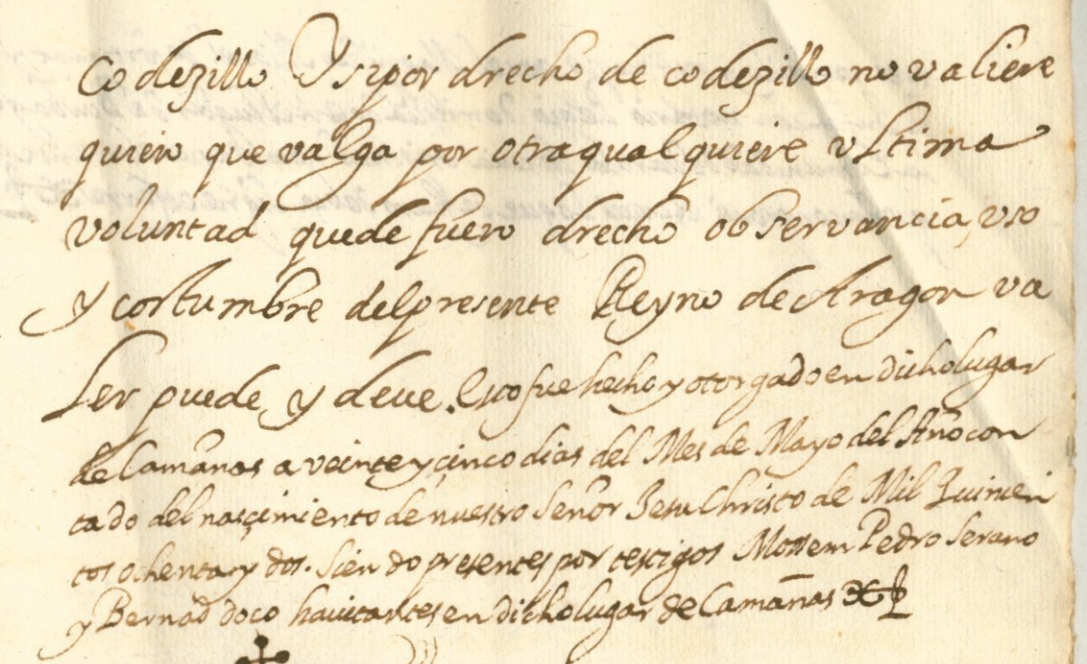 codezillo Y si por drecho de codezillo no valiere
quiero que valga por otra qualquiere vltima
voluntad que de fuero drecho observancia, vso
y costumbre del presente Reyno de Aragon va
Ler puede, y deue. Esto fue hecho y otorgado en dicho lugar
de Camañas a veinte y cinco dias del Mes de Mayo del Año con
tado del nasçimiento de nuestro Señor Jesu Christo de Mil Quinien
tos ochenta y dos. Siendo presentes por testigos Mossem Pedro Serano
y Bernad doco hauitantes en dicho lugar de Camañas